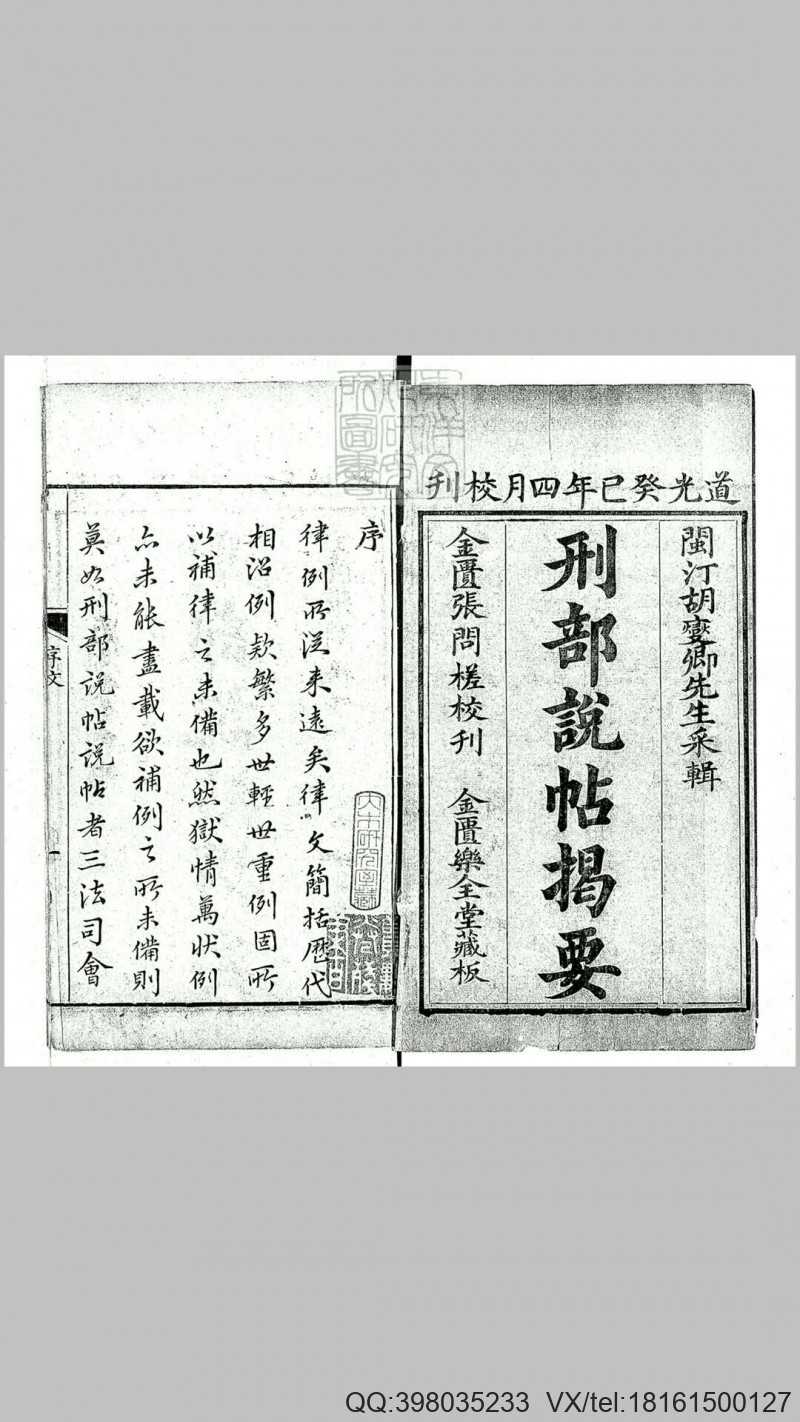 道光癸巳年四月校刊
閩汀胡燮卿先生采輯
刑部說帖揭要
金匱張問槎校刊 金匱樂全堂藏板
序
律例所從来遠矣律文簡括歷代
相沿例欵繁多世輕世重例固所
以補律之未備也然獄情萬狀例
亦未能盡載欲補例之所未備則
莫如刑部說帖說帖者三法司會
序文
一
QQ:398035233 VX/tel:18161500127